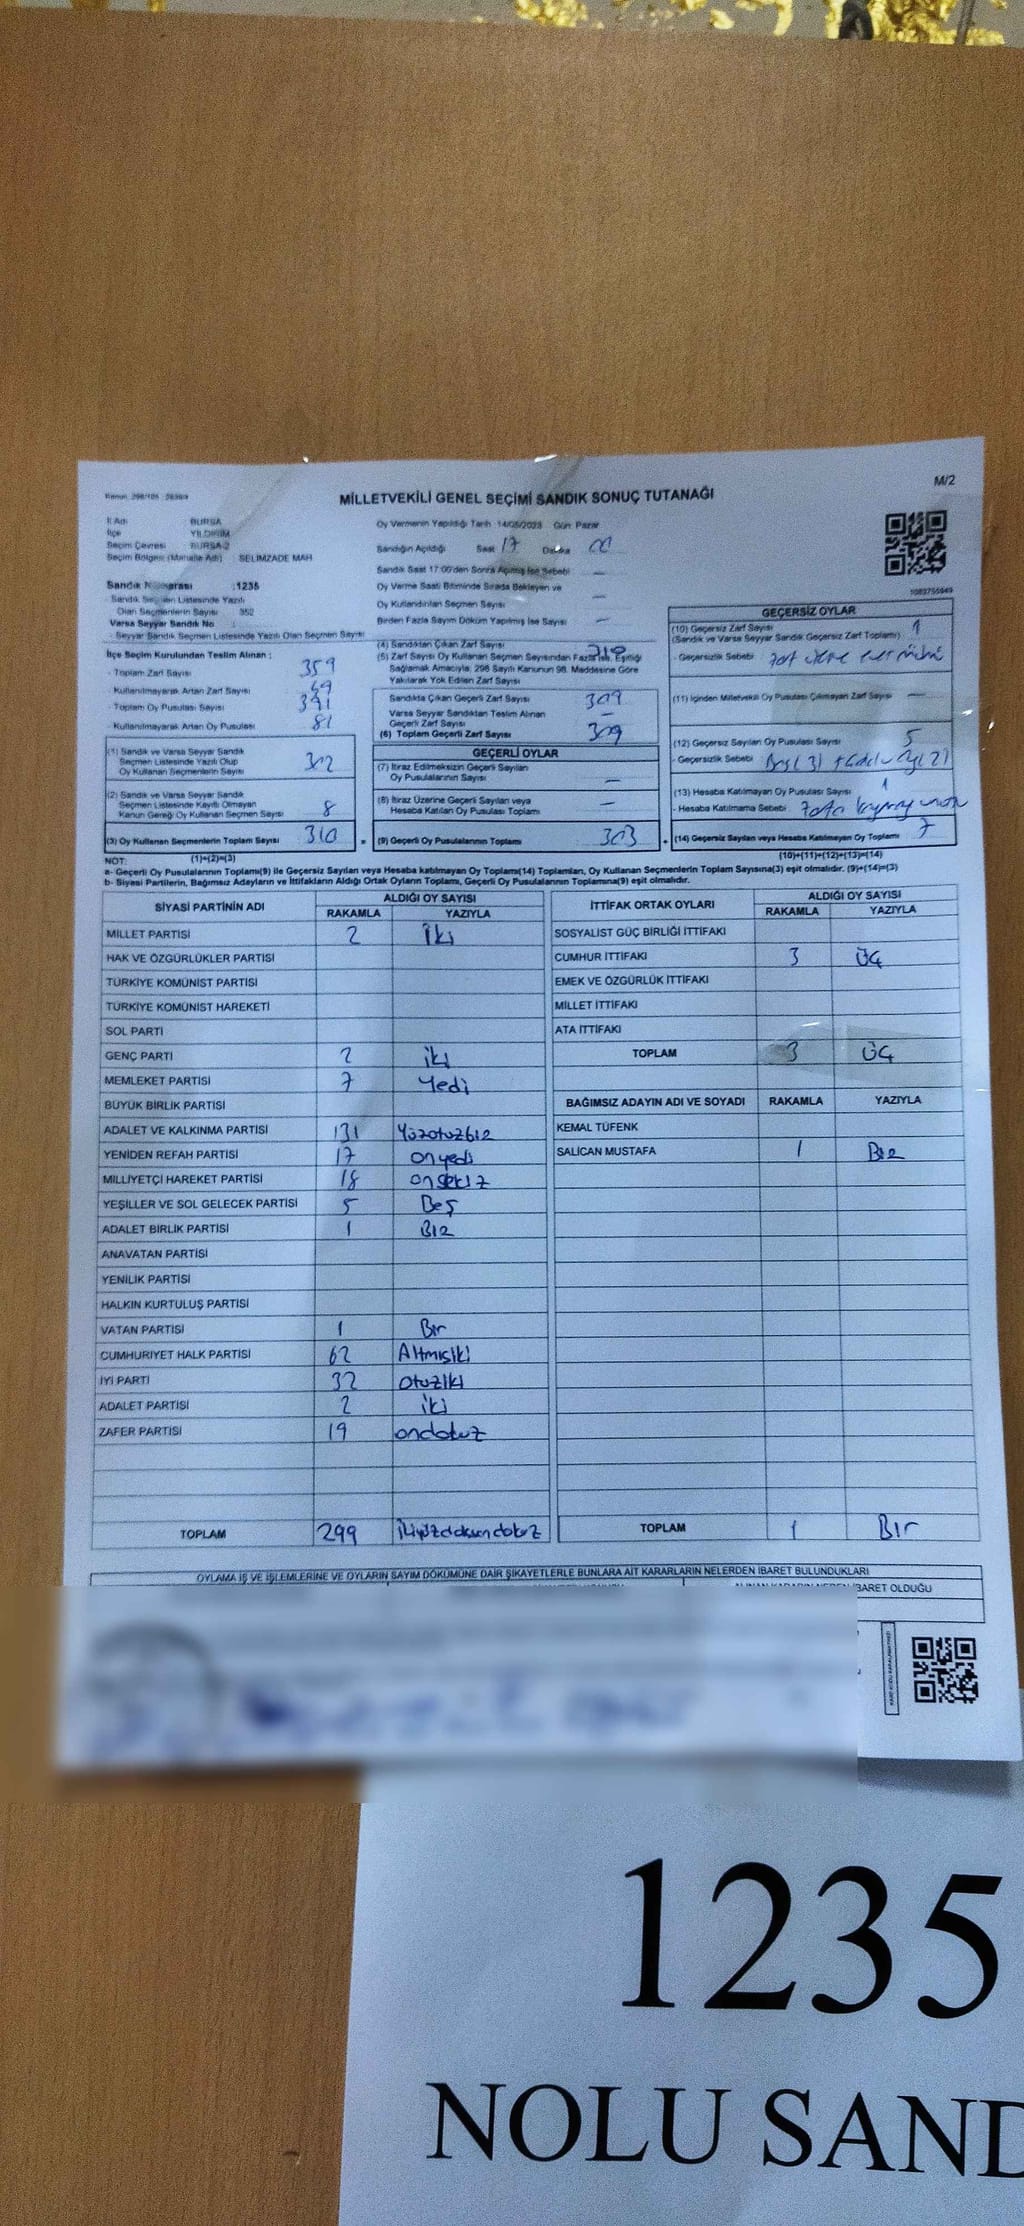 M/2
MİLLETVEKİLİ GENEL SEÇİMİ SANDIK SONUÇ TUTANAĞI
İl Adı BURSA
İlçe YILDIRIM
Seçim Çevresi BURSA-2
Seçim Bölgesi (Mahalle Adı) SELIMZADE MAH
Sandık :1235
Sandık Seçmen Listesinde Yazılı
Olan Seçmenlerin Sayısı 352
Varsa Seyyar Sandık No
Seyyar Sandık Seçmen Listesinde Yazılı Olan Seçmen Sayısı
İlçe Seçim Kurulundan Teslim Alınan :
- Toplam Zarf Sayısı 359
- Kullanılmayarak Artan Zarf Sayısı
- Toplam Oy Pusulası Sayısı 391
- Kullanılmayarak Artan Oy Pusulası 81
(1) Sandık ve Varsa Seyyar Sandık
Seçmen Listesinde Yazılı Olup
Oy Kullanan Seçmenlerin Sayısı 302
(2) Sandık ve Varsa Seyyar Sandık
Seçmen Listesinde Kayıtlı Olmayan
Kanun Gereği Oy Kullanan Seçmen Sayısı 8
(3) Oy Kullanan Seçmenlerin Toplam Sayısı 310
(1)+(2)=(3)
Oy Vermenin Yapıldığı Tarih 14/05/2023 Gün Pazar
Sandığın Açıldığı Saat 17 Dakika 00
Sandık Saat 17:00'den Sonra Açılmış İse Sebebi —
Oy Verme Saati Bitiminde Sırada Bekleyen ve
Oy Kullandırılan Seçmen Sayısı —
Birden Fazla Sayım Döküm Yapılmış İse Sayısı —
(4) Sandıktan Çıkan Zarf Sayısı 310
(5) Zarf Sayısı Oy Kullanan Seçmen Sayısından Fazla İse, Eşitliği
Sağlamak Amacıyla, 298 Sayılı Kanunun 98. Maddesine Göre
Yakılarak Yok Edilen Zarf Sayısı
Sandıkta Çıkan Geçerli Zarf Sayısı 309
Varsa Seyyar Sandıktan Teslim Alınan
Geçerli Zarf Sayısı —
(6) Toplam Geçerli Zarf Sayısı 309
GEÇERLİ OYLAR
(7) İtiraz Edilmeksizin Geçerli Sayılan
Oy Pusulalarının Sayısı —
(8) İtiraz Üzerine Geçerli Sayılan veya
Hesaba Katılan Oy Pusulası Toplamı —
(9) Geçerli Oy Pusulalarının Toplamı 303
GEÇERSİZ OYLAR
(10) Geçersiz Zarf Sayısı 1
(Sandık ve Varsa Seyyar Sandık Geçersiz Zarf Toplamı)
- Geçersizlik Sebebi
(11) İçinden Milletvekili Oy Pusulası Çıkmayan Zarf Sayısı —
(12) Geçersiz Sayılan Oy Pusulası Sayısı 5
- Geçersizlik Sebebi Boş (3)
(13) Hesaba Katılmayan Oy Pusulası Sayısı 1
- Hesaba Katılmama Sebebi
(14) Geçersiz Sayılan veya Hesaba Katılmayan Oy Toplamı 7
(10)+(11)+(12)+(13)=(14)
NOT:
a- Geçerli Oy Pusulalarının Toplamı(9) ile Geçersiz Sayılan veya Hesaba katılmayan Oy Toplamı(14) Toplamları, Oy Kullanan Seçmenlerin Toplam Sayısına(3) eşit olmalıdır. (9)+(14)=(3)
b- Siyasi Partilerin, Bağımsız Adayların ve İttifakların Aldığı Ortak Oyların Toplamı, Geçerli Oy Pusulalarının Toplamına(9) eşit olmalıdır.
SİYASİ PARTİNİN ADI ALDIĞI OY SAYISI
RAKAMLA YAZIYLA
MİLLET PARTİSİ 2 İki
HAK VE ÖZGÜRLÜKLER PARTİSİ
TÜRKİYE KOMÜNİST PARTİSİ
TÜRKİYE KOMÜNİST HAREKETİ
SOL PARTİ
GENÇ PARTİ 2 iki
MEMLEKET PARTİSİ 7 Yedi
BÜYÜK BİRLİK PARTİSİ
ADALET VE KALKINMA PARTİSİ 131 Yüzotuzbir
YENİDEN REFAH PARTİSİ 17 onyedi
MİLLİYETÇİ HAREKET PARTİSİ 18 onsekiz
YEŞİLLER VE SOL GELECEK PARTİSİ 5 Beş
ADALET BİRLİK PARTİSİ 1 Bir
ANAVATAN PARTİSİ
YENİLİK PARTİSİ
HALKIN KURTULUŞ PARTİSİ
VATAN PARTİSİ 1 Bir
CUMHURİYET HALK PARTİSİ 62 Altmışiki
İYİ PARTİ 32 otuziki
ADALET PARTİSİ 2 iki
ZAFER PARTİSİ 19 ondokuz
TOPLAM 299 ikiyüzdoksandokuz
İTTİFAK ORTAK OYLARI ALDIĞI OY SAYISI
RAKAMLA YAZIYLA
SOSYALİST GÜÇ BİRLİĞİ İTTİFAKI
CUMHUR İTTİFAKI 3 ÜÇ
EMEK VE ÖZGÜRLÜK İTTİFAKI
MİLLET İTTİFAKI
ATA İTTİFAKI
TOPLAM 3 ÜÇ
BAĞIMSIZ ADAYIN ADI VE SOYADI RAKAMLA YAZIYLA
KEMAL TÜFENK
SALİCAN MUSTAFA 1 Bir
TOPLAM 1 Bir
OYLAMA İŞ VE İŞLEMLERİNE VE OYLARIN SAYIM DÖKÜMÜNE DAİR ŞİKAYETLERLE BUNLARA AİT KARARLARIN NELERDEN İBARET BULUNDUKLARI
İBARET OLDUĞU
1235
NOLU SAND